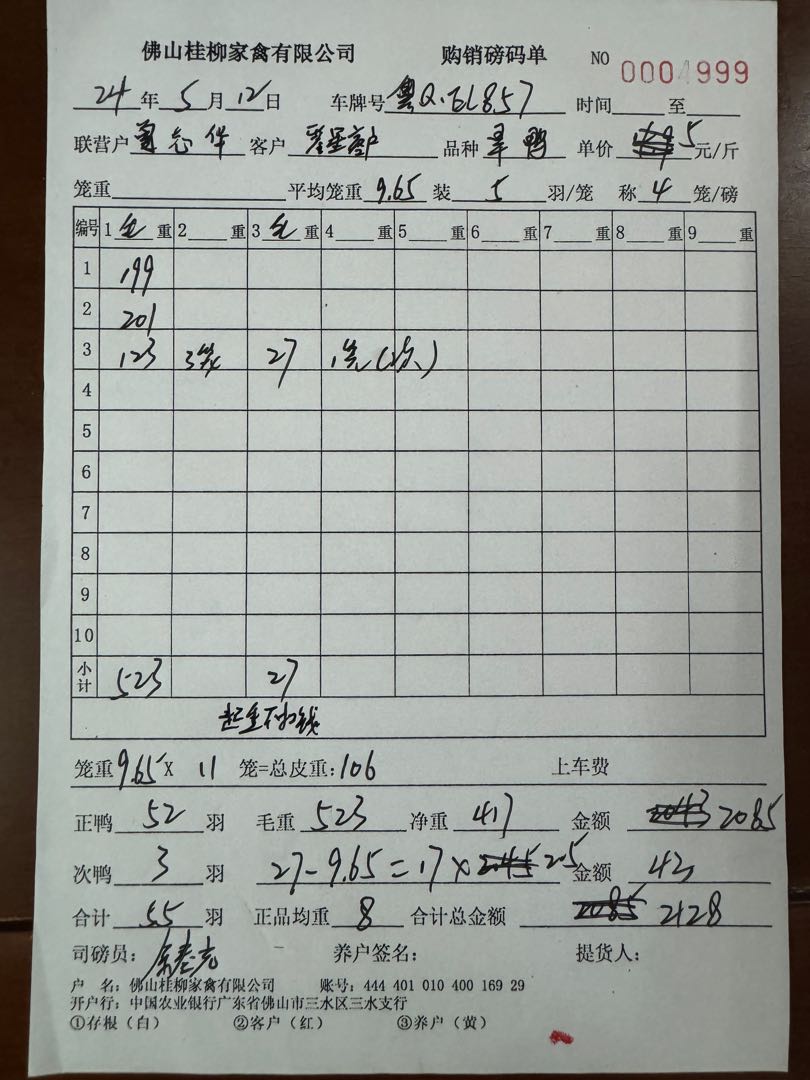 佛山桂柳家禽有限公司 购销磅码单 NO 0004999
24年5月12日 车牌号粤Q.EL857 时间 至
联营户 客户 品种 鸭 单价 5元/斤
笼重 平均笼重9.65 装5羽/笼 称4笼/磅
编号 1毛重 2 重 3毛重 4 重 5 重 6 重 7 重 8 重 9 重
1 199
2 201
3 123 3笼 27 1笼(次)
4
5
6
7
8
9
10
小计 523 27
起重不加钱
笼重9.65X 11 笼=总皮重:106 上车费
正鸭52羽 毛重523 净重417 金额 2043 2085
次鸭3羽 27-9.65=17× 2.45 2.5 金额 43
合计55羽 正品均重8 合计总金额 2085 2128
司磅员: 养户签名: 提货人:
户 名: 佛山桂柳家禽有限公司 账号: 444 401 010 400 169 29
开户行: 中国农业银行广东省佛山市三水区三水支行
①存根(白) ②客户(红) ③养户(黄)